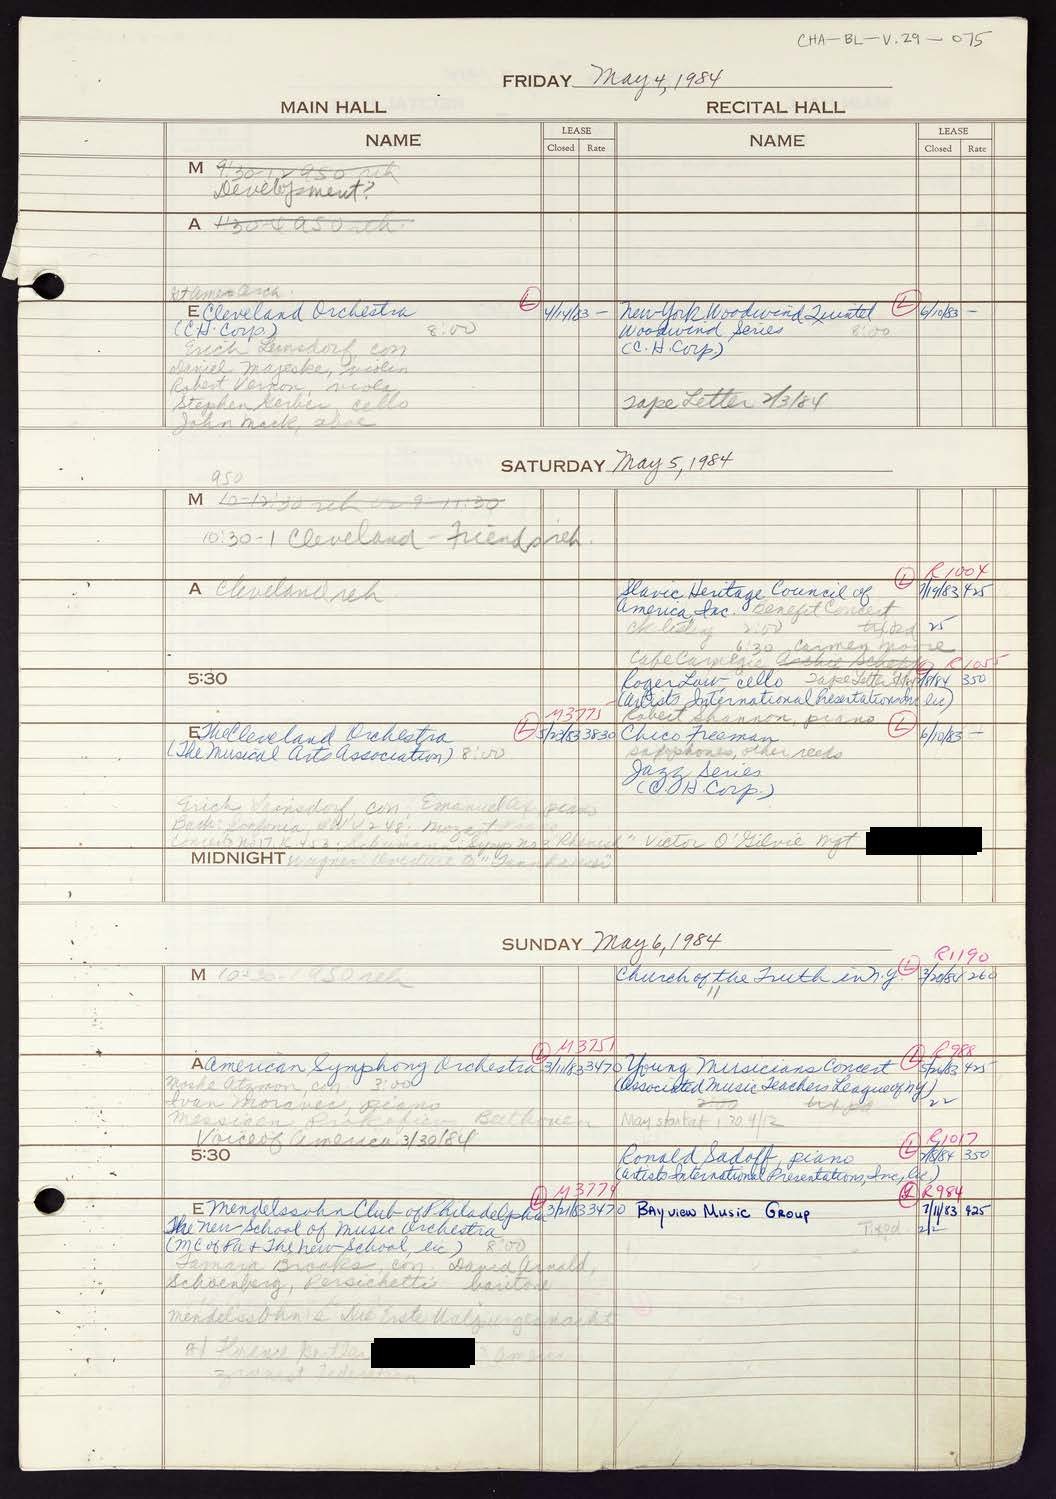 CHA-BL-V.29-075
FRIDAY May 4, 1984
MAIN HALL
RECITAL HALL
NAME
LEASE
Closed Rate
NAME
LEASE
Closed Rate
M 9:30-12 ASO reh
Development?
A 1:30-4 ASO reh.
E Cleveland Orchestra L 4/14/83 -
(C.H. Corp.) 8:00
Erich Leinsdorf, con
Daniel Majeske, violin
Robert Vernon, viola
Stephen Geber, cello
John Mack, oboe
New York Woodwind Quintet L 6/10/83 -
Woodwind Series 8:00
(C.H. Corp.)
Tape Letter 2/3/84
SATURDAY May 5, 1984
ASO
M 10-12:30 reh or 9-11:30
10:30-1 Cleveland - Friends reh.
A Cleveland reh
R1004
Slavic Heritage Council of L 7/19/83 425
America, Inc. Benefit Concert
2:00 25
6:30 Carmen Moore
Cafe Carnegie
5:30
R1055
Roger Low cello Tape Letter 7/8/84 350
(Artists International Presentations Inc lic)
Robert Shannon, piano
M3775
E The Cleveland Orchestra L 5/23/83 3830
(The Musical Arts Association) 8:00
Chico Freeman L 6/10/83 -
saxophones, other reeds
Jazz Series
(C.H. Corp.)
Erich Leinsdorf, con; Emanuel Ax, piano
Bach: Sinfonia, BWV 248; Mozart Piano
Concerto No 17, K. 453; Schumann: Symp No 3 "Rhenish"
Victor O'Gilvie Mgt
MIDNIGHT Wagner: Overture to "Tannhauser"
SUNDAY May 6, 1984
M 10-12:30-1 ASO reh
R1190
Church of the Truth in N.Y. L 3/20/84 260
11
M3751
A American Symphony Orchestra L 3/11/83 3470
Moshe Atzmon, con 3:00
Ivan Moravec, piano
Messiaen Prokofiev Beethoven
Voice of America 3/30/84
R988
Young Mursicians Concert L 5/26/83 425
(Associated Music Teachers League of NY)
2:00 22
May start at 1:30 4/12
5:30
R1017
Ronald Sadoff, piano L 7/8/84 350
(Artists International Presentations, Inc, lic)
M3774
E Mendelssohn Club of Philadelphia L 3/21/83 3470
The New School of Music Orchestra
(MC of Pa + The New School, lic) 8:00
Tamara Brooks, con. David Arnold,
Schoenberg, Persichetti baritone
Mendelssohn's Die Erste Walpurgisnacht
R984
BAYVIEW MUSIC GROUP L 7/11/83 425
22